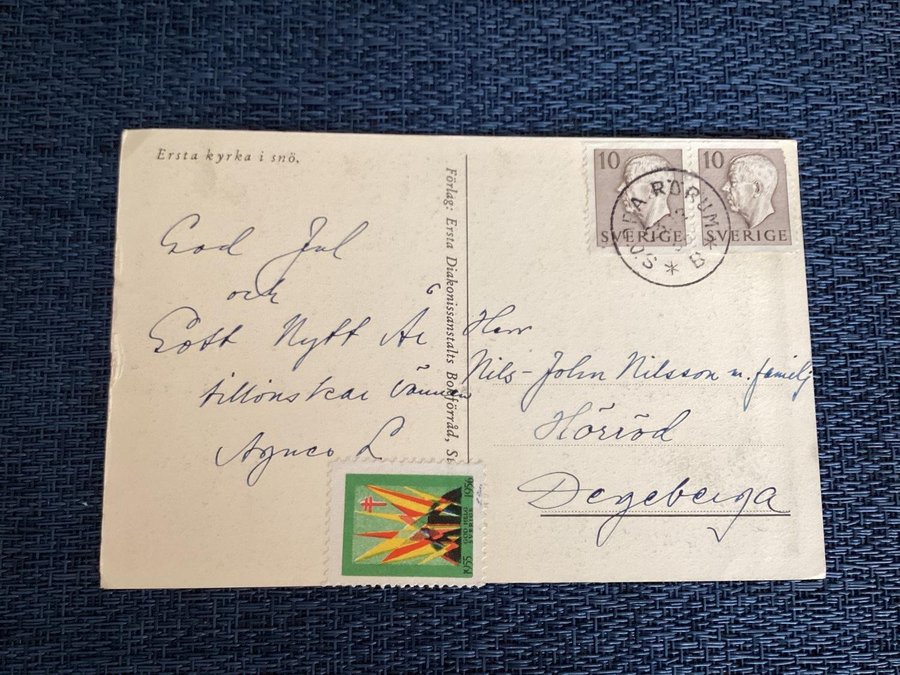 Ersta kyrka i snö.
God Jul
och
Gott Nytt År
tillönskar vännen
Agnes L
Förlag: Ersta Diakonissanstalts Bokförråd,
10
SVERIGE
10
SVERIGE
RÖRUM
Herr
Nils-John Nilsson m. familj
Hörröd
Degeberga
1955
GOD HELG
SVERIGE
1956